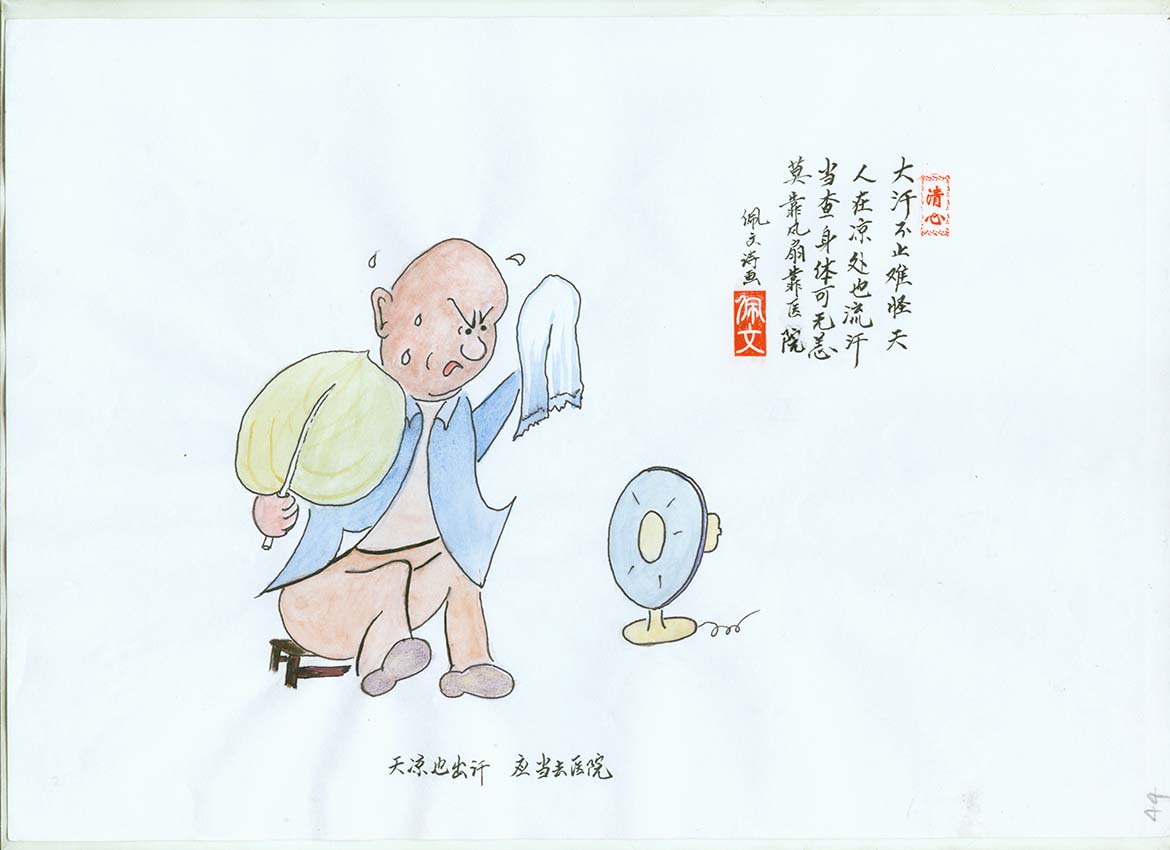 清心
大汗不止难怪天
人在凉处也流汗
当查身体可无恙
莫靠丸扇靠医院
佩文诗画
佩文
天凉也出汗 应当去医院
49